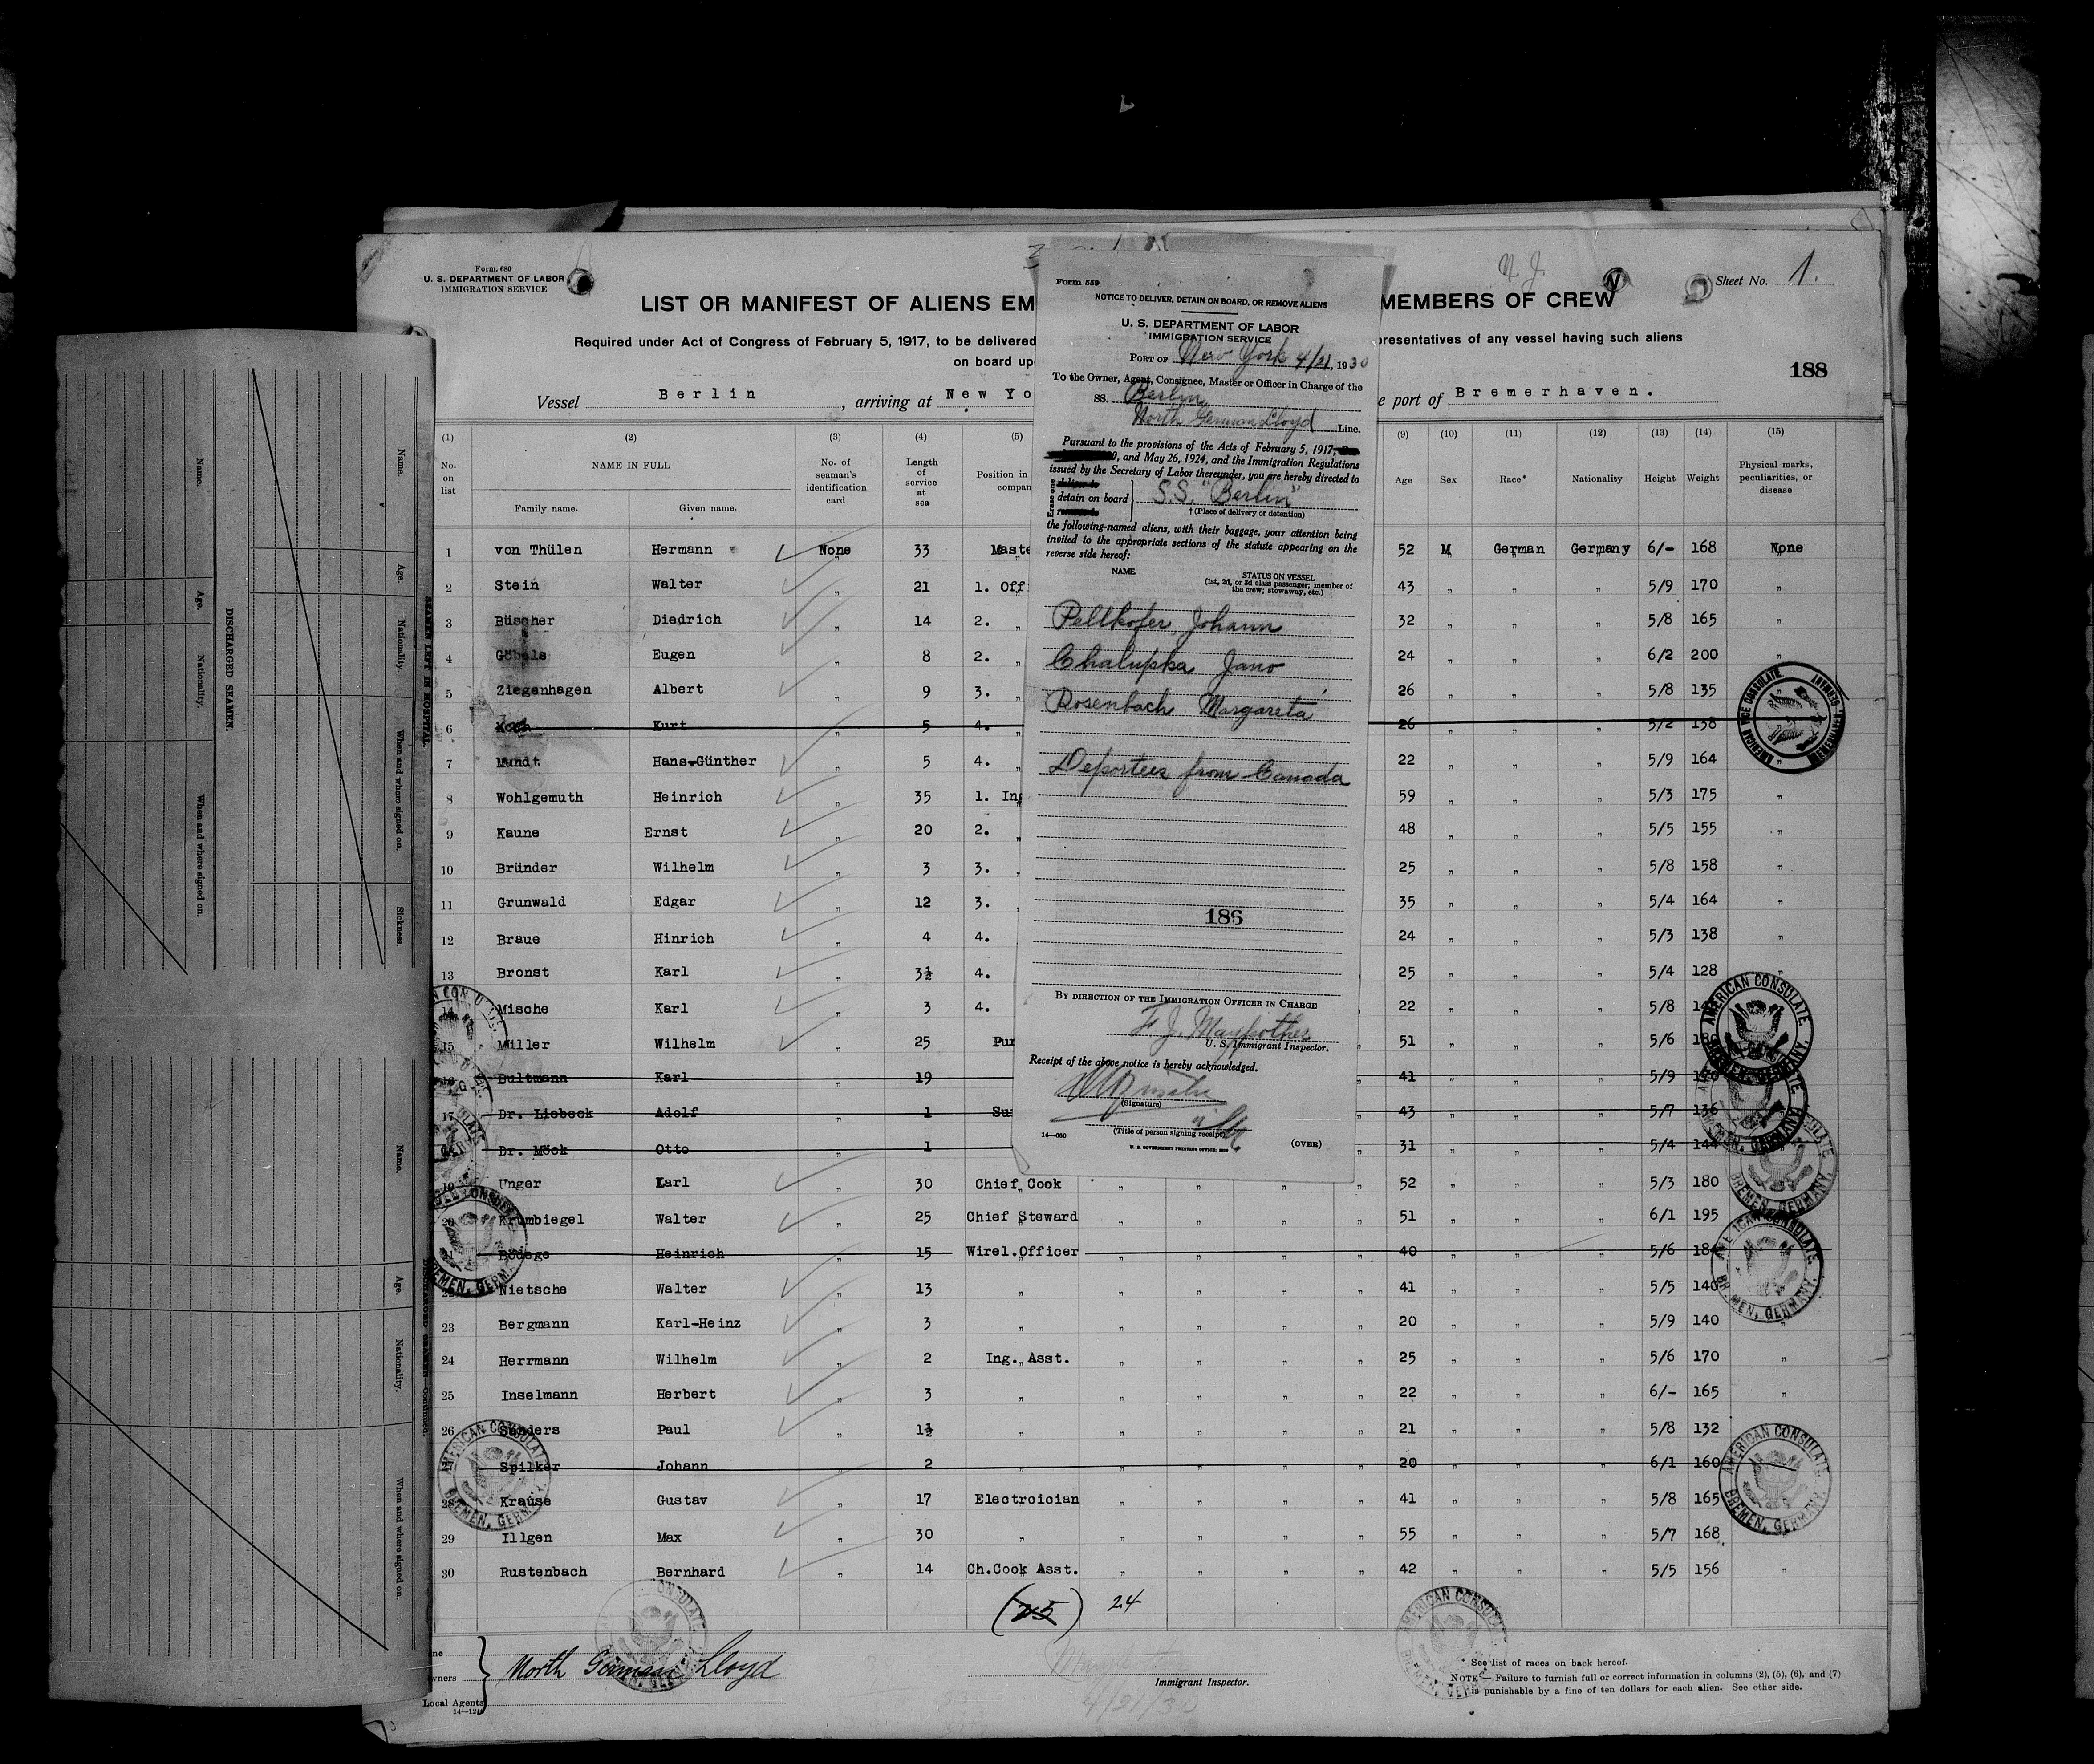 Form. 680
U. S. DEPARTMENT OF LABOR
IMMIGRATION SERVICE
N. J.
Sheet No. 1.
LIST OR MANIFEST OF ALIENS EM MEMBERS OF CREW
Required under Act of Congress of February 5, 1917, to be delivered presentatives of any vessel having such aliens
on board upo
188
Vessel Berlin, arriving at New Yo e port of Bremerhaven.
(1) (2) (3) (4) (5) (9) (10) (11) (12) (13) (14) (15)
No. on list NAME IN FULL No. of seaman's identification card Length of service at sea Position in compan Age Sex Race* Nationality Height Weight Physical marks, peculiarities, or disease
Family name. Given name.
1 von Thülen Hermann None 33 Maste 52 M German Germany 6/- 168 None
2 Stein Walter " 21 1. Off 43 " " " 5/9 170 "
3 Büscher Diedrich " 14 2. " 32 " " " 5/8 165 "
4 Göbels Eugen " 8 2. " 24 " " " 6/2 200 "
5 Ziegenhagen Albert " 9 3. " 26 " " " 5/8 135 "
6 Koch Kurt " 5 4. 26 " " " 5/2 138
7 Mundt Hans-Günther " 5 4. " 22 " " " 5/9 164 "
8 Wohlgemuth Heinrich " 35 1. Ing 59 " " " 5/3 175 "
9 Kaune Ernst " 20 2. " 48 " " " 5/5 155 "
10 Bründer Wilhelm " 3 3. " 25 " " " 5/8 158 "
11 Grunwald Edgar " 12 3. 35 " " " 5/4 164 "
12 Braue Hinrich " 4 4. 24 " " " 5/3 138 "
13 Bronst Karl " 3½ 4. 25 " " " 5/4 128 "
14 Mische Karl " 3 4. 22 " " " 5/8
15 Miller Wilhelm " 25 Pur " 51 " " " 5/6
16 Bultmann Karl " 19 " 41 " " " 5/9
17 Dr. Liebeck Adolf " 1 Su " 43 " " " 5/7 136
Dr. Möck Otto " 1 " 31 " " " 5/4 144
19 Unger Karl " 30 Chief Cook " " " " 52 " " " 5/3 180
20 Krumbiegel Walter " 25 Chief Steward " " " " 51 " " " 6/1 195
21 Bödege Heinrich " 15 Wirel.Officer " " " " 40 " " " 5/6 184
22 Nietsche Walter " 13 " " " " " 41 " " " 5/5 140
23 Bergmann Karl-Heinz " 3 " " " " " 20 " " " 5/9 140 "
24 Herrmann Wilhelm " 2 Ing. Asst. " " " " 25 " " " 5/6 170 "
25 Inselmann Herbert " 3 " " " " " 22 " " " 6/- 165 "
26 Sanders Paul " 1½ " " " " " 21 " " " 5/8 132
Spilker Johann " 2 " " " " " 20 " " " 6/1 160
28 Krause Gustav " 17 Electrcician " " " " 41 " " " 5/8 165
29 Illgen Max " 30 " " " " " 55 " " " 5/7 168 "
30 Rustenbach Bernhard " 14 Ch.Cook Asst. " " " " 42 " " " 5/5 156 "
(25) 24
ine
wners
Local Agents
North German Lloyd
Immigrant Inspector.
4/21/30
* See list of races on back hereof.
NOTE.—Failure to furnish full or correct information in columns (2), (5), (6), and (7)
is punishable by a fine of ten dollars for each alien. See other side.
Form 559
NOTICE TO DELIVER, DETAIN ON BOARD, OR REMOVE ALIENS
U. S. DEPARTMENT OF LABOR
IMMIGRATION SERVICE
PORT OF New York 4/21, 1930
To the Owner, Agent, Consignee, Master or Officer in Charge of the
SS. Berlin
North German Lloyd Line.
Pursuant to the provisions of the Acts of February 5, 1917,
0, and May 26, 1924, and the Immigration Regulations
issued by the Secretary of Labor thereunder, you are hereby directed to
Erase one
deliver to
detain on board } S.S. "Berlin"
remove to
† (Place of delivery or detention)
the following-named aliens, with their baggage, your attention being
invited to the appropriate sections of the statute appearing on the
reverse side hereof:
NAME STATUS ON VESSEL
(1st, 2d, or 3d class passenger; member of
the crew; stowaway, etc.)
Pellkofer, Johann
Chalupka Jano
Rosenbach Margareta
Deportees from Canada
186
BY DIRECTION OF THE IMMIGRATION OFFICER IN CHARGE
F. J. Maypother
U. S. Immigrant Inspector.
Receipt of the above notice is hereby acknowledged.
(Signature)
(Title of person signing receipt)
14—660
U. S. GOVERNMENT PRINTING OFFICE
(OVER)
SEAMEN LEFT IN HOSPITAL
Name. Age. Nationality. When and where signed on. Sickness.
DISCHARGED SEAMEN.
Name. Age. Nationality. When and where signed on.
DISCHARGED SEAMEN—Continued.
Name. Age. Nationality. When and where signed on.
AMERICAN VICE CONSULATE BREMERHAVEN, GERMANY
AMERICAN CONSULATE BREMEN, GERMANY.
AMERICAN CONSULATE BREMEN, GERMANY.
AMERICAN CONSULATE BREMEN, GERMANY.
AMERICAN CONSULATE BREMEN, GERMANY.